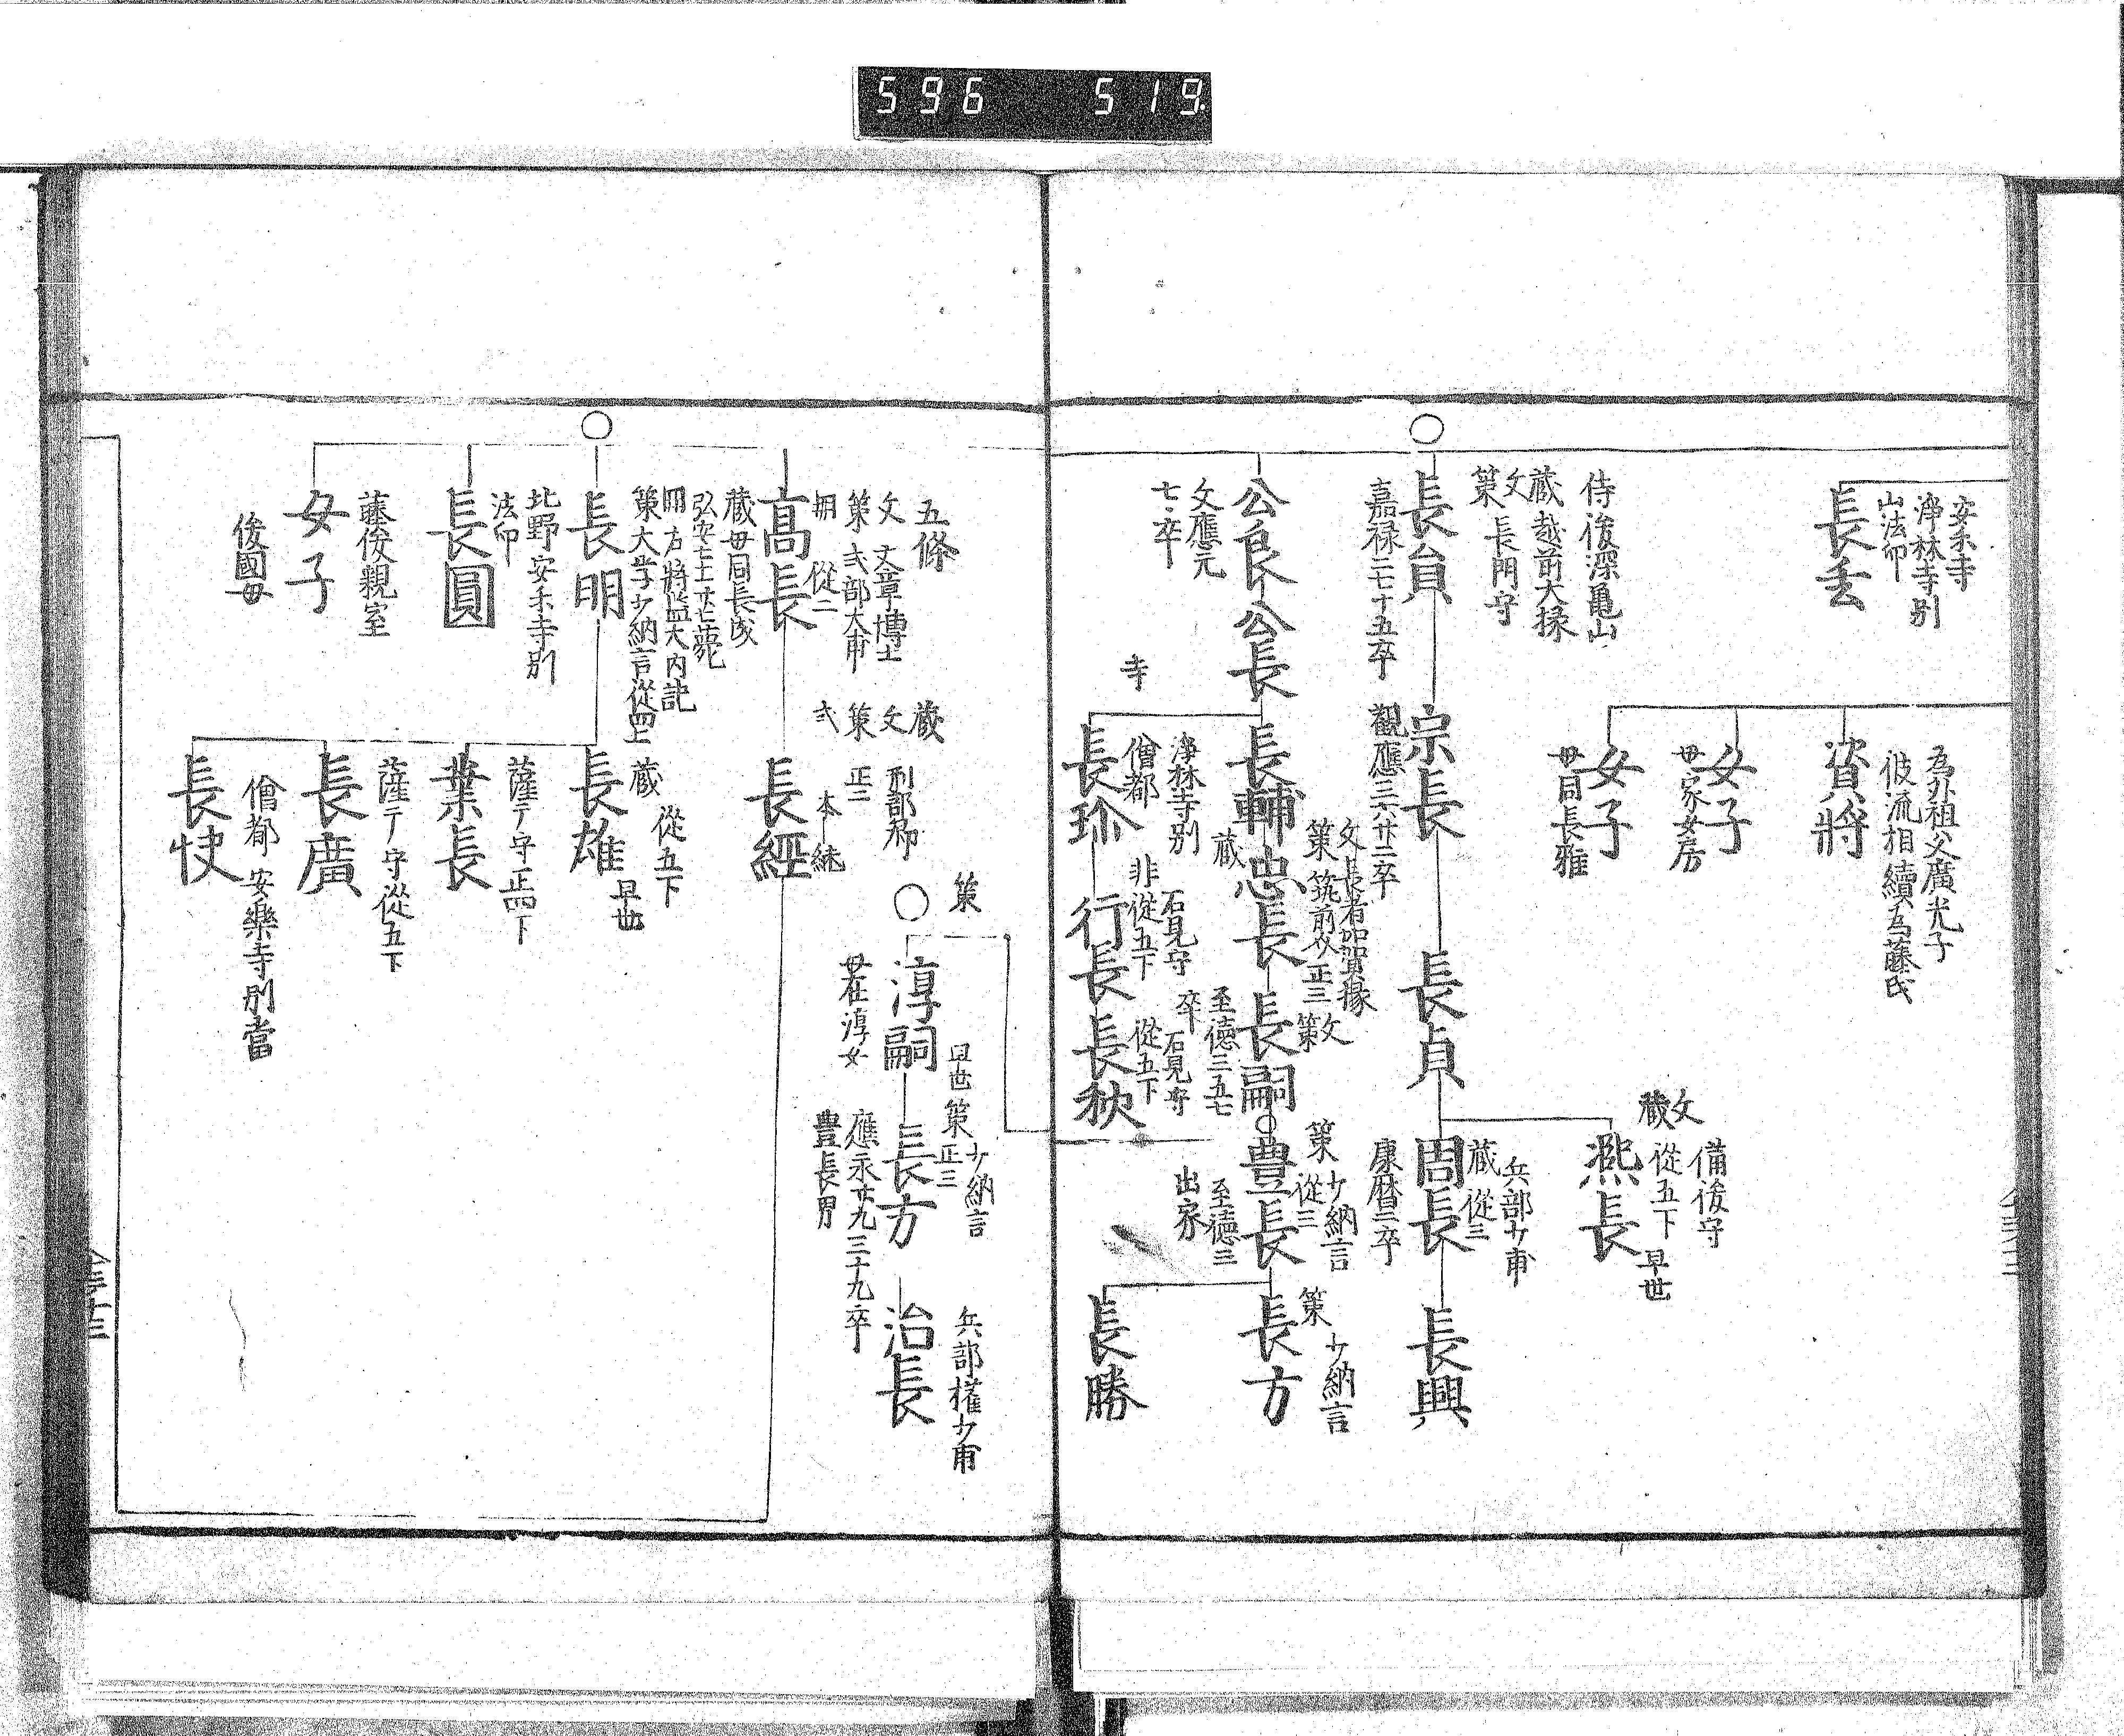 596 519.
淨林寺別
山法印
長
為外祖父廣光子
彼流相續為藤氏
資將
女子
母家女房
女子
母同長雅
侍後深亀山
蔵 越前大掾
文
策 長門守
長員
嘉禄二七十五卒
宗長
觀應三六廿二卒
長貞
文
蔵
備後守
從五下
早世
熈長
兵部少甫
蔵 從三
周長
康暦三卒
長興
公良
公長
文應元
七・卒
長輔
蔵
忠長
文 長者 加賀掾
策 筑前介 正三
長嗣
文
策
至徳三五七
卒
豊長
策 少納言
從三
至徳三
出家
長方
策 少納言
長勝
寺
淨林寺別
僧都
行長
石見守
非從五下
長秋
石見守
從五下
策
淳嗣
早世
母在淳女
長方
策 少納言
正三
應永廿九三十九卒
豊長男
治長
兵部権少甫
五條
文 文章博士
策 式部大甫
從二
高長
蔵
文
策
式
刑部卿
正二
長經
蔵 母同長成
大内記
策 大学少納言從四上
長明
蔵 從五下
早世
長雄
北野安禾寺別
法印
長圓
薩丁守正四下
業長
藤俊親室
女子
俊國母
薩丁守從五下
長廣
僧都 安樂寺別當
長快